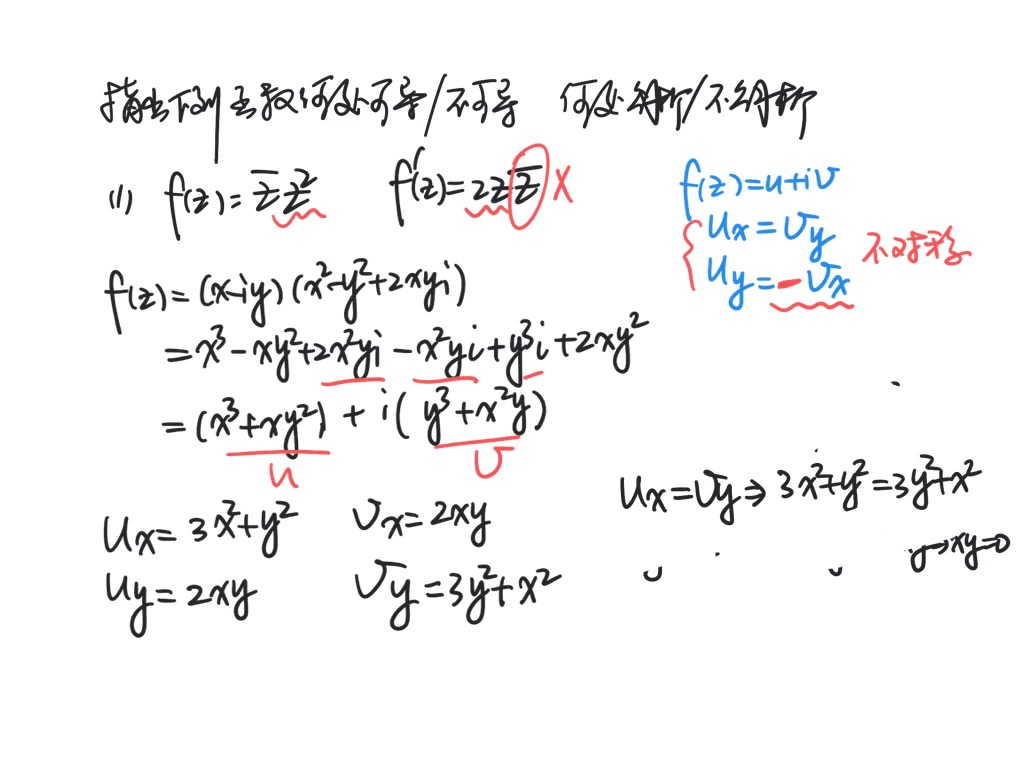 指出下列函数何处可导/不可导 何处解析/不解析
(1) f(z) = z̅z² f'(z) = 2zz̅ X
f(z)=u+iv
ux = vy
uy = -vx 不对称
f(z) = (x-iy)(x²-y²+2xyi)
= x³ - xy²+2x²yi - x²yi + y³i + 2xy²
= (x³+xy²) + i(y³+x²y)
u v
ux = 3x²+y² vx = 2xy
ux = vy ⇒ 3x²+y² = 3y²+x²
uy = 2xy vy = 3y²+x²
xy=0